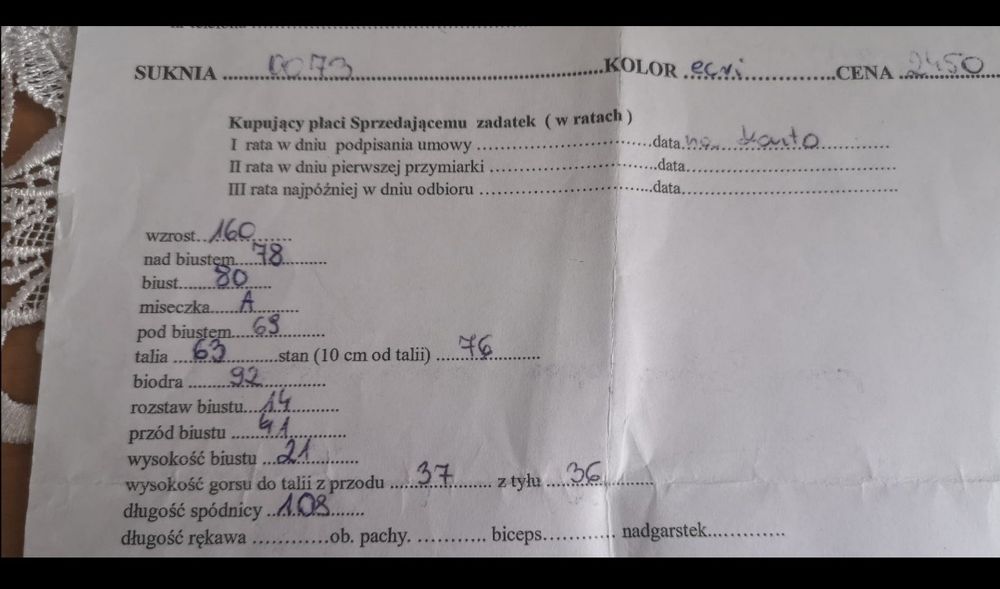 SUKNIA 0073 KOLOR ecri CENA 2450
Kupujący płaci Sprzedającemu zadatek ( w ratach )
I rata w dniu podpisania umowy data na konto
II rata w dniu pierwszej przymiarki data
III rata najpóźniej w dniu odbioru data
wzrost 160
nad biustem 78
biust 80
miseczka A
pod biustem 69
talia 63 stan (10 cm od talii) 76
biodra 92
rozstaw biustu 14
przód biustu 41
wysokość biustu 21
wysokość gorsu do talii z przodu 37 z tyłu 36
długość spódnicy 108
długość rękawa ob. pachy. biceps nadgarstek